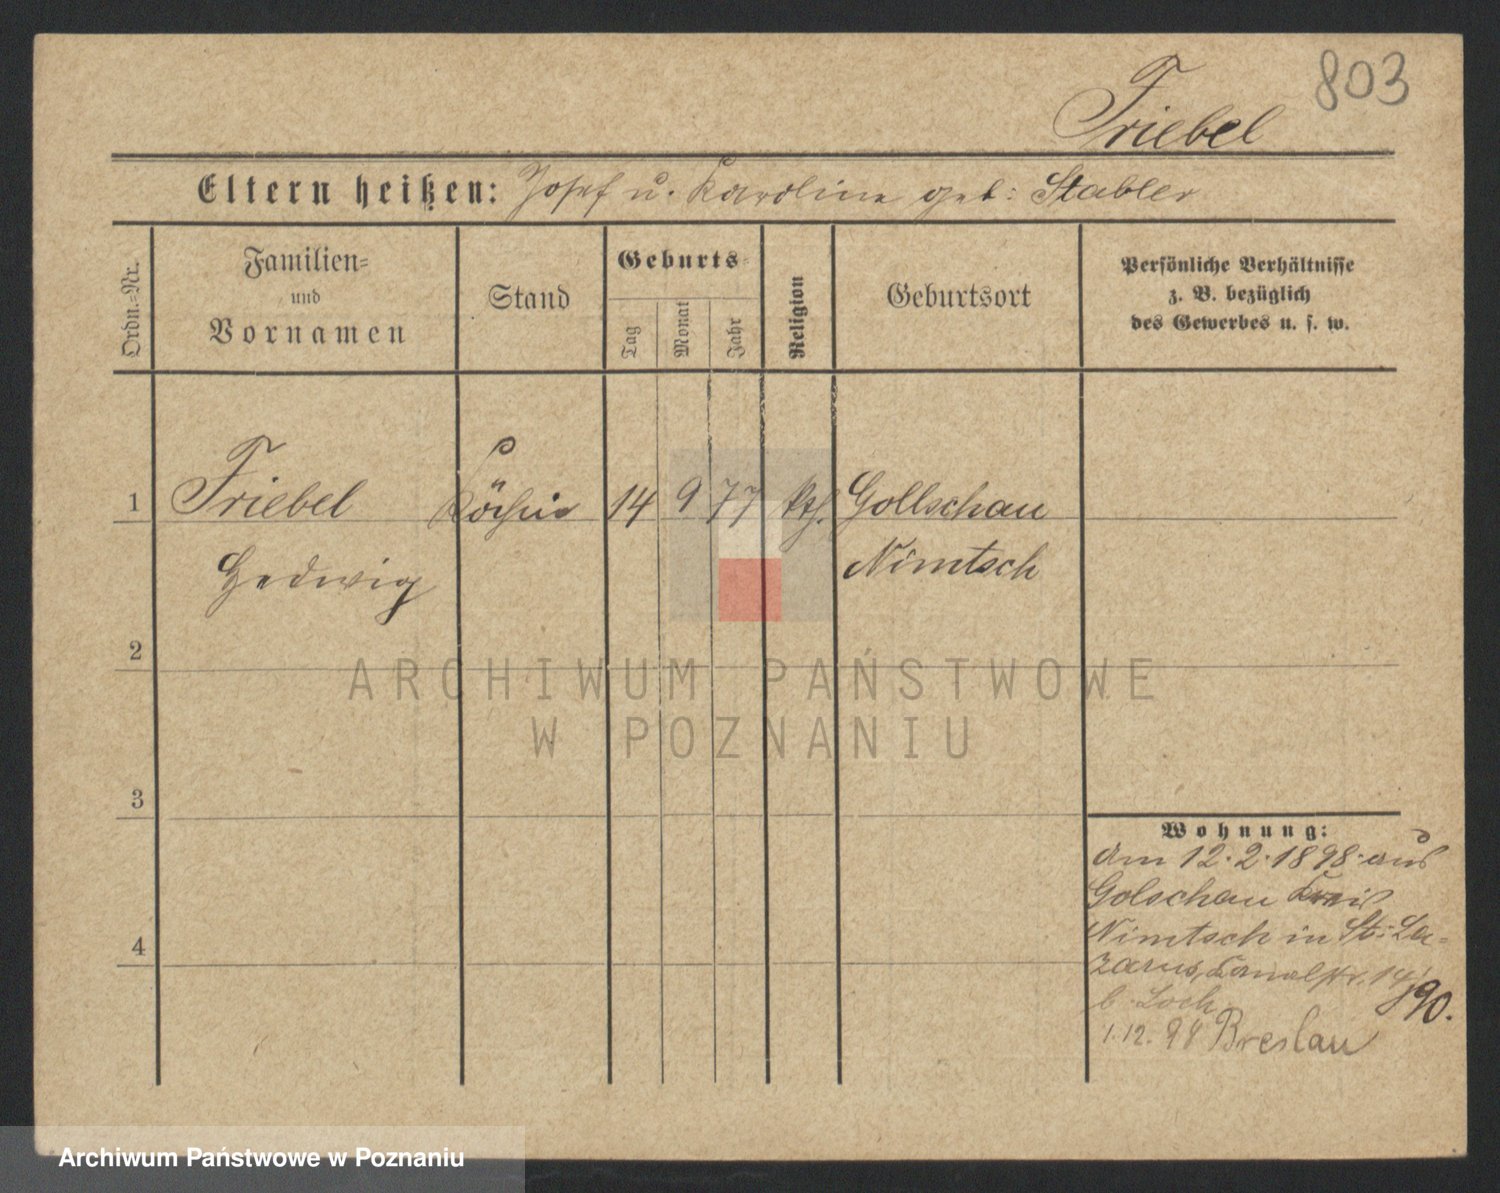 803
Friebel
Eltern heißen: Josef u. Karoline geb: Stabler
Ordn.=Nr.
Familien=
und
Vornamen
Stand
Geburts=
Tag
Monat
Jahr
Religion
Geburtsort
Persönliche Verhältnisse
z. B. bezüglich
des Gewerbes u. s. w.
1 Friebel Köchin 14 9 77 kth. Gollschau
Hedwig Nimtsch
2
ARCHIWUM PAŃSTWOWE
W POZNANIU
3
Wohnung:
am 12.2.1898 aus
Golschau Kreis
Nimtsch in St: La-
4
zarus, Kanalstr. 14/
b. Loch 90.
1.12.98 Breslau
Archiwum Państwowe w Poznaniu